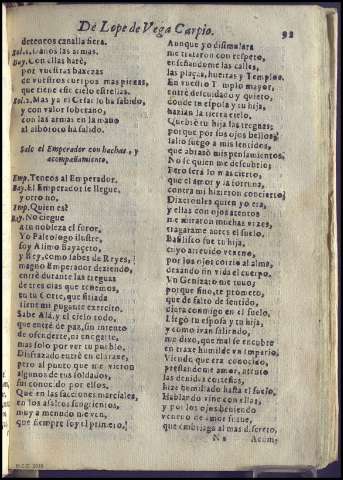 De Lope de Vega Carpio.
92
deteneos canalla fiera.
Sol. 1. Danos las armas.
Bay. Con ellas harè,
por vuestras baxezas
de vuestros cuerpos mas pieças,
que tiene esse cielo estrellas.
Sol. 2. Mas ya el Cesar lo ha sabido,
y con valor soberano,
con las armas en la mano
al alboroto ha salido.
Sale el Emperador con hachas, y
acompañamiento.
Emp. Teneos al Emperador.
Bay. El Emperador te llegue,
y otro no.
Emp. Quien es?
Bay. No ciegue
a tu nobleza el furor,
Yo Paleologo ilustre,
soy Alimo Bayaceto,
y Rey, como sabes de Reyes,
magno Emperador
entrè durante las treguas
de tres dias que tenemos,
en tu Corte, que sitiada
tiene mi pujante exercito.
Sabe Alá, y el cielo todo,
que entrè de paz, sin intento
de ofenderte, ni enojarte,
mas solo por ver tu pueblo.
Disfrazado entrè en el traxe,
pero al punto que me vieron
algunos de tus soldados,
fui conocido por ellos.
Que en las facciones marciales,
en los assaltos sangrientos,
muy a menudo me ven,
que siempre soy el primero.
Aunque yo dissimulara
me trataron con respeto,
enseñandome las calles,
las plaças, huertas y Templos.
En vuestro Templo mayor,
entrè descuidado y quieto,
donde tu esposa y tu hija,
hazian la tierra cielo.
Quebrè tu hija las treguas;
porque por sus ojos bellos
salto fuego a mis sentidos,
que abrasò mis pensamientos.
No sè quien me descubriò;
Pero serà lo mas cierto,
que el amor y la fortuna,
contra mi hizieron concierto;
Dixeronles quien yo era,
y ellas con ojos atentos
me miraron muchas vezes,
tragarame antes el suelo.
Basilisco fue tu hija,
cuyo atrevido veneno,
por los ojos corrio al alma,
dexando sin vida el cuerpo.
Yo Genizaro me tuvo;
porque fino, te prometo,
que de falto de sentido,
diera conmigo en el suelo,
Llegò tu esposa y tu hija,
y como ivan saliendo,
me dixo, que mal se encubre
en traxe humilde un Imperio.
Viendo que era conocido,
prestandome amor, astuto
las devidas cortesias,
hize humillado hasta el suelo.
Hablando vine con ellas,
y por los ojos beviendo
veneno de amor suave,
que embriaga al mas discreto,
N 2
Acom-